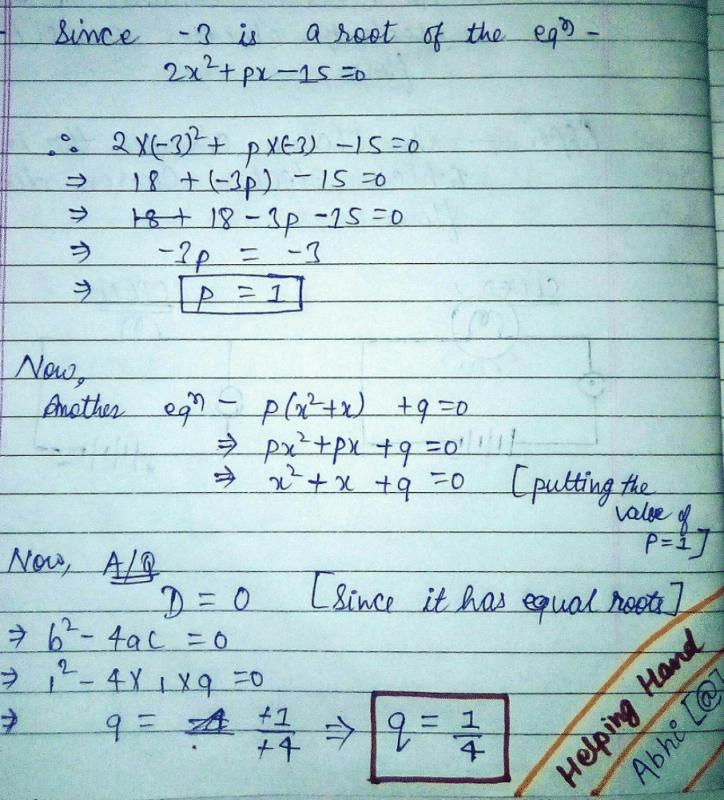 Since -3 is a root of the eqⁿ -
2x² + px - 15 = 0
∴ 2×(-3)² + p×(-3) - 15 = 0
⇒ 18 + (-3p) - 15 = 0
⇒ 18 + 18 - 3p - 15 = 0
⇒ -3p = -3
⇒ p = 1
Now,
Another eqⁿ - p(x²+x) + q = 0
⇒ px² + px + q = 0
⇒ x² + x + q = 0 [putting the
value of
P=1]
Now, A/Q
D = 0 [Since it has equal roots]
⇒ b² - 4ac = 0
⇒ 1² - 4×1×q = 0
⇒ q = +1/+4 ⇒ q = 1/4
Helping Hand
Abhi [@]